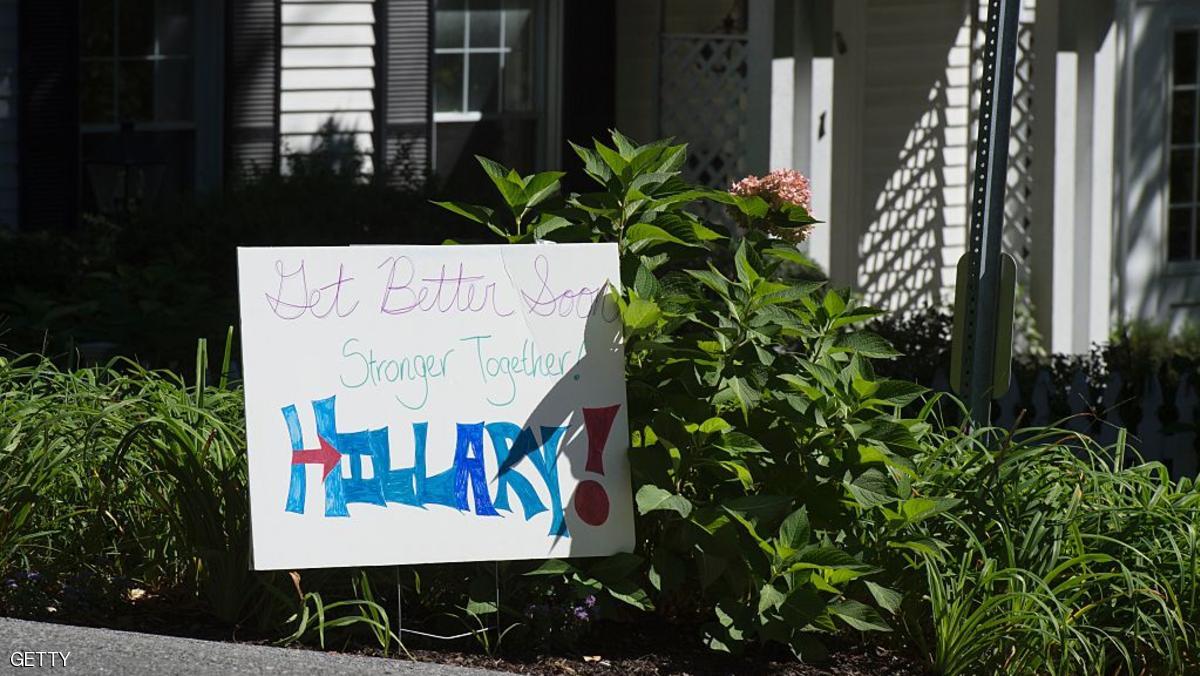 Get Better Soon
Stronger Together!
HILLARY!
GETTY